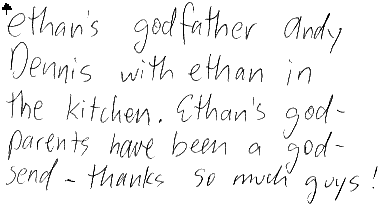 ethan's godfather andy
Dennis with ethan in
the kitchen. Ethan's god-
parents have been a god-
send - thanks so much guys!